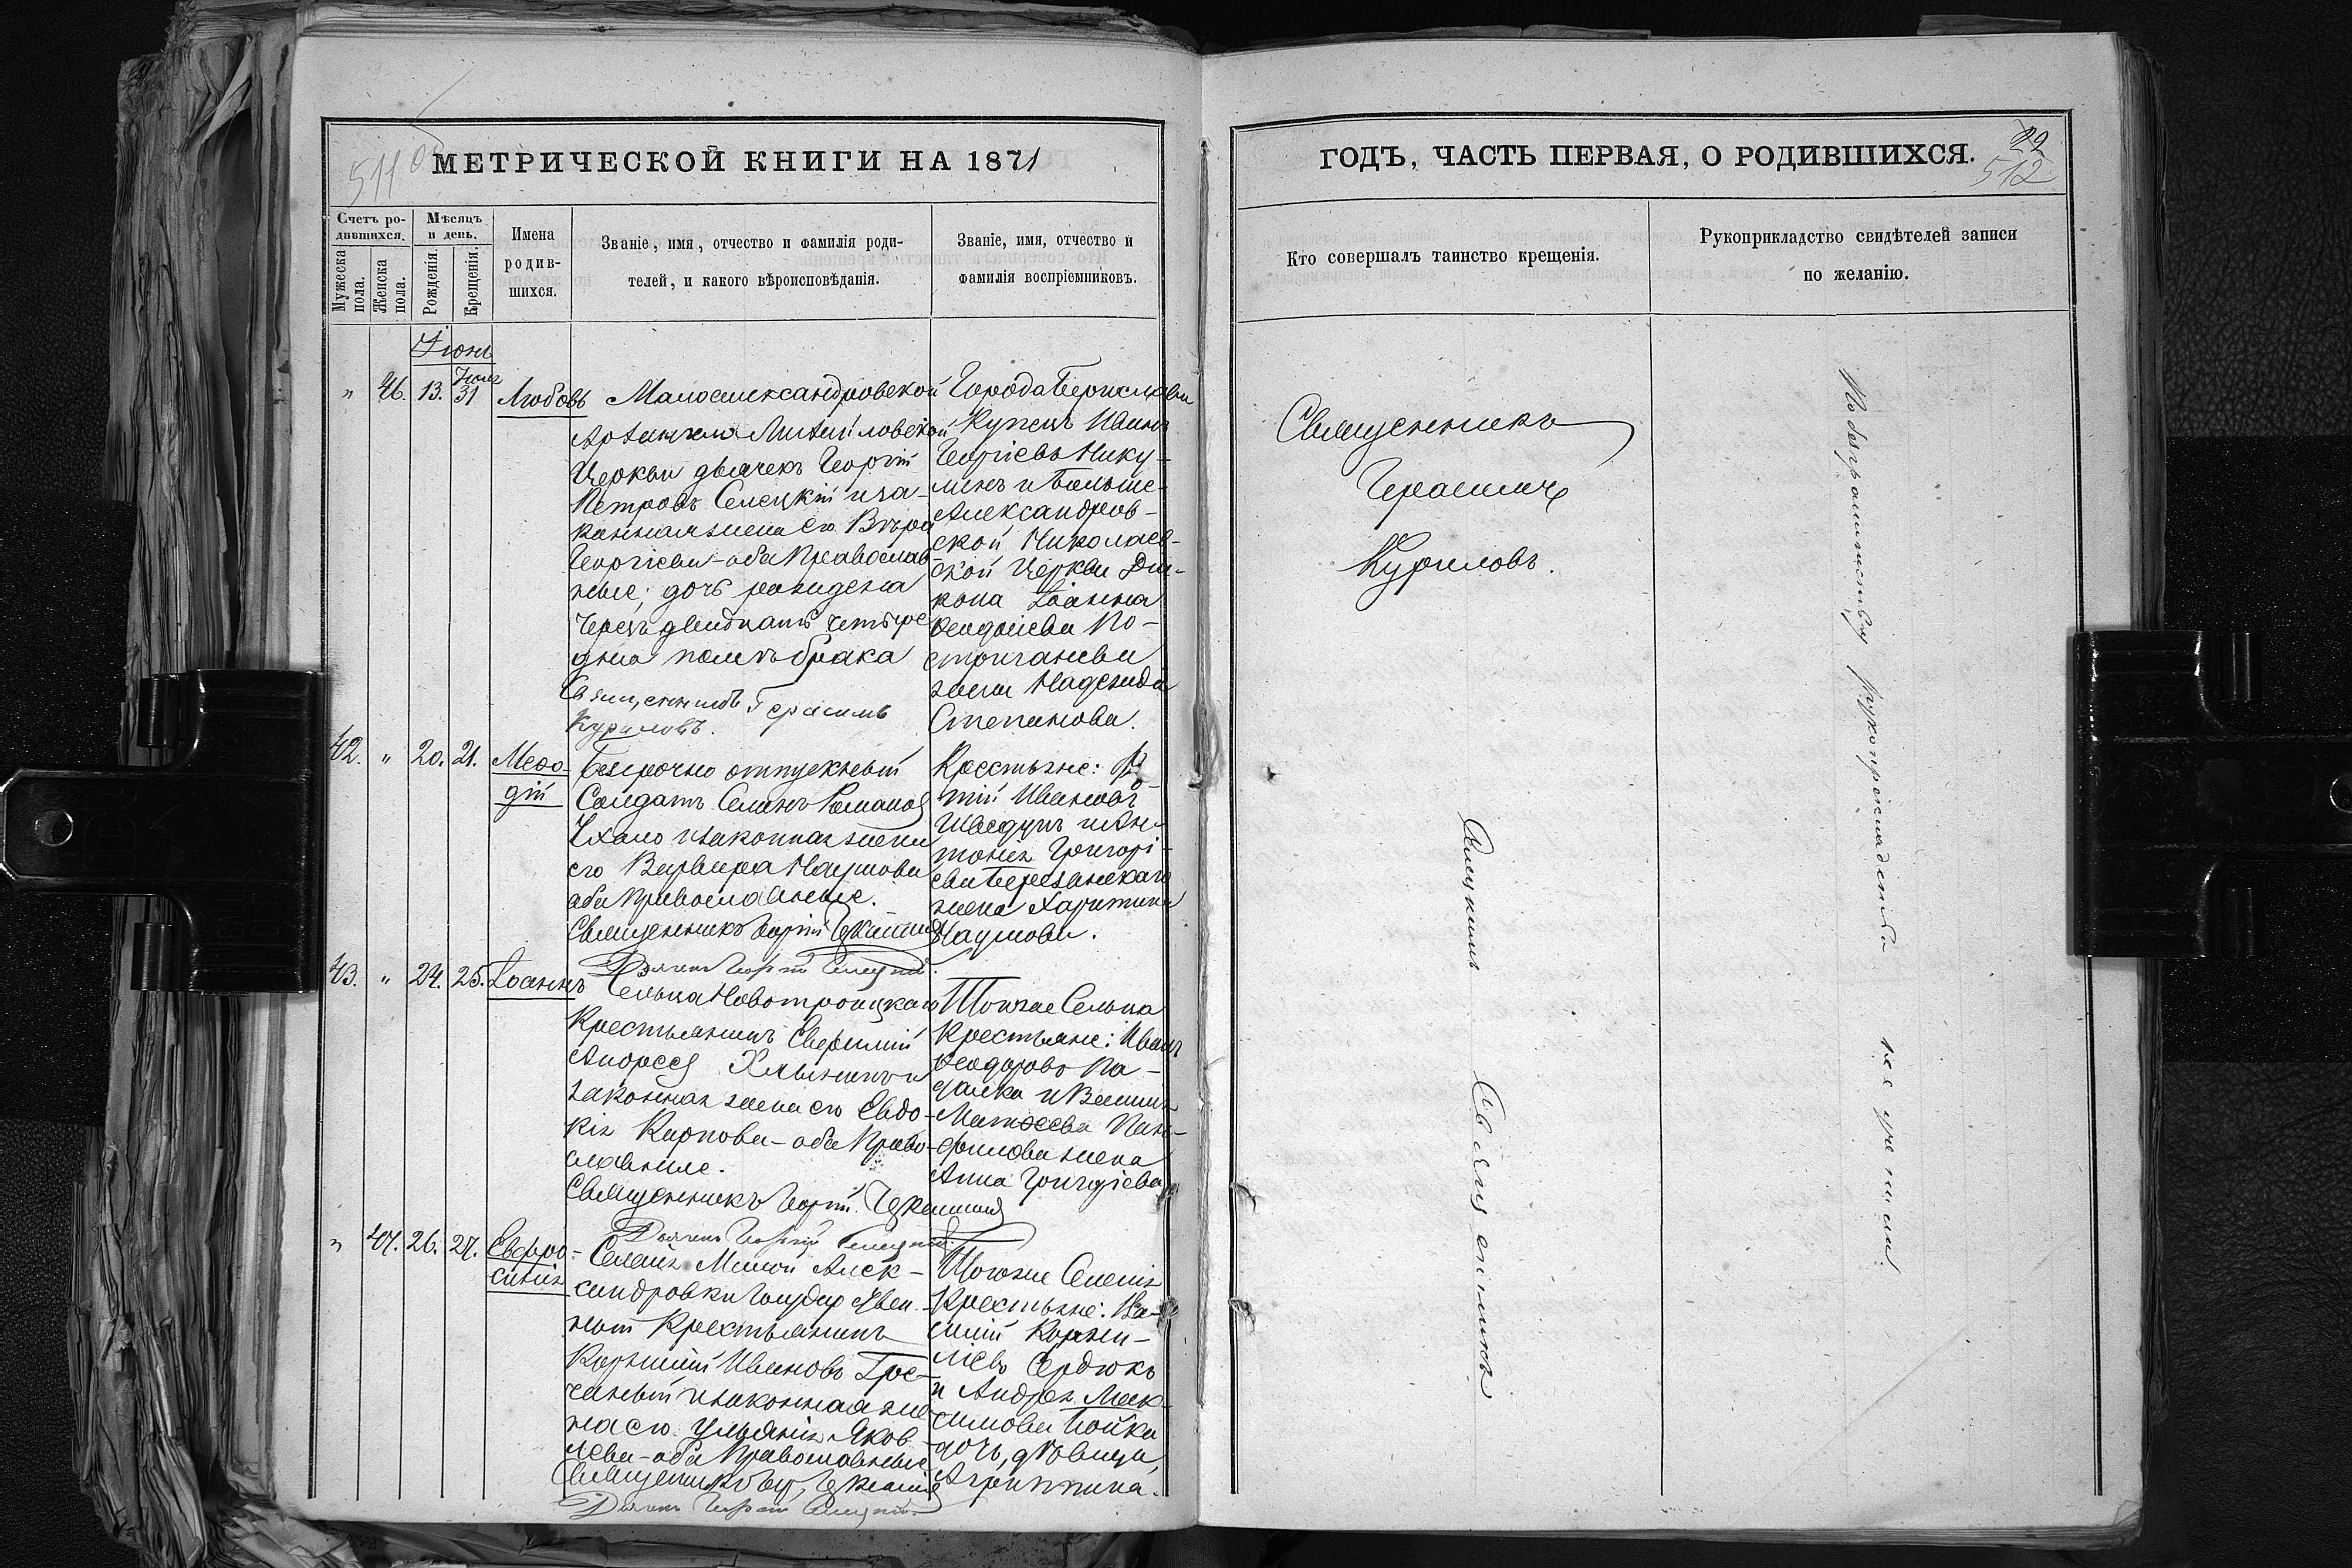 511
МЕТРИЧЕСКОЙ КНИГИ НА 1871
Счетъ ро-
дившихся.
Мѣсяцъ
и день.
Мужеска
пола.
Женска
пола.
Рожденія.
Крещенія.
Имена
родив-
шихся.
Званіе, имя, отчество и фамилія роди-
телей, и какого вѣроисповѣданія.
Званіе, имя, отчество и
фамилія воспріемниковъ.
Іюнь
" 46. 13. Іюля 31 Любовь
Малоалександровской
Архангело Михайловской
Церкви дьячекъ Георгій
Петровъ Селецкій и за-
конная жена его Вѣра
Георгіева - оба Православ-
ные; дочь рождена
черезъ двадцать четыре
дня послѣ брака
Священникъ Герасимъ
Куриловъ.
Города Берислава
Купецъ Иванъ
Георгіевъ Нику-
линъ и Больше-
Александров-
ской Николаев-
ской Церкви Діа-
кона Іоанна
Ѳеодосіева По-
жена Надежда
Степанова.
42. " 20. 21. Меѳо-
дій
Безсрочно отпускный
Солдатъ Семенъ Романовъ
и законная жена
его Варвара Наумова
оба Православные.
Священникъ Георгій
Дьячекъ Георгій Селецкій.
Крестьяне:
Ивановъ
Шведунъ и Ан-
тонія Григорі-
ева Березанскаго
жена Харитина
Наумова.
43. " 24. 25. Іоаннъ
Сельца Новотроицкаго
Крестьянинъ Евфимій
Андреевъ и
законная жена его Евдо-
кія Карпова - оба Право-
славные.
Священникъ Георгій
Дьячекъ Георгій Селецкій.
Того же Сельца
Крестьяне: Иванъ
Ѳеодоровъ Па-
и Василія
Матѳеева Пан-
филова жена
Анна Григоріева
" 47. 26. 27. Евфро-
синія
Селенія Малой Алек-
сандровки Государствен-
ный Крестьянинъ
Корнилій Ивановъ Гре-
чаный и законная же-
на его Ульянія Яков-
лева - оба Православные
Священникъ Геор.
Дьячекъ Георгій Селецкій.
Того же Селенія
Крестьяне: Ва-
силій Корни-
ліевъ Сердюкъ
и Андрея Мак-
симова Бойка
дочь, дѣвица,
Агриппина.
ГОДЪ, ЧАСТЬ ПЕРВАЯ, О РОДИВШИХСЯ.
22
512
Кто совершалъ таинство крещенія.
Рукоприкладство свидѣтелей записи
по желанію.
Священникъ
Герасимъ
Куриловъ.
Священникъ
По безграмотству рукоприкладства не учинили.